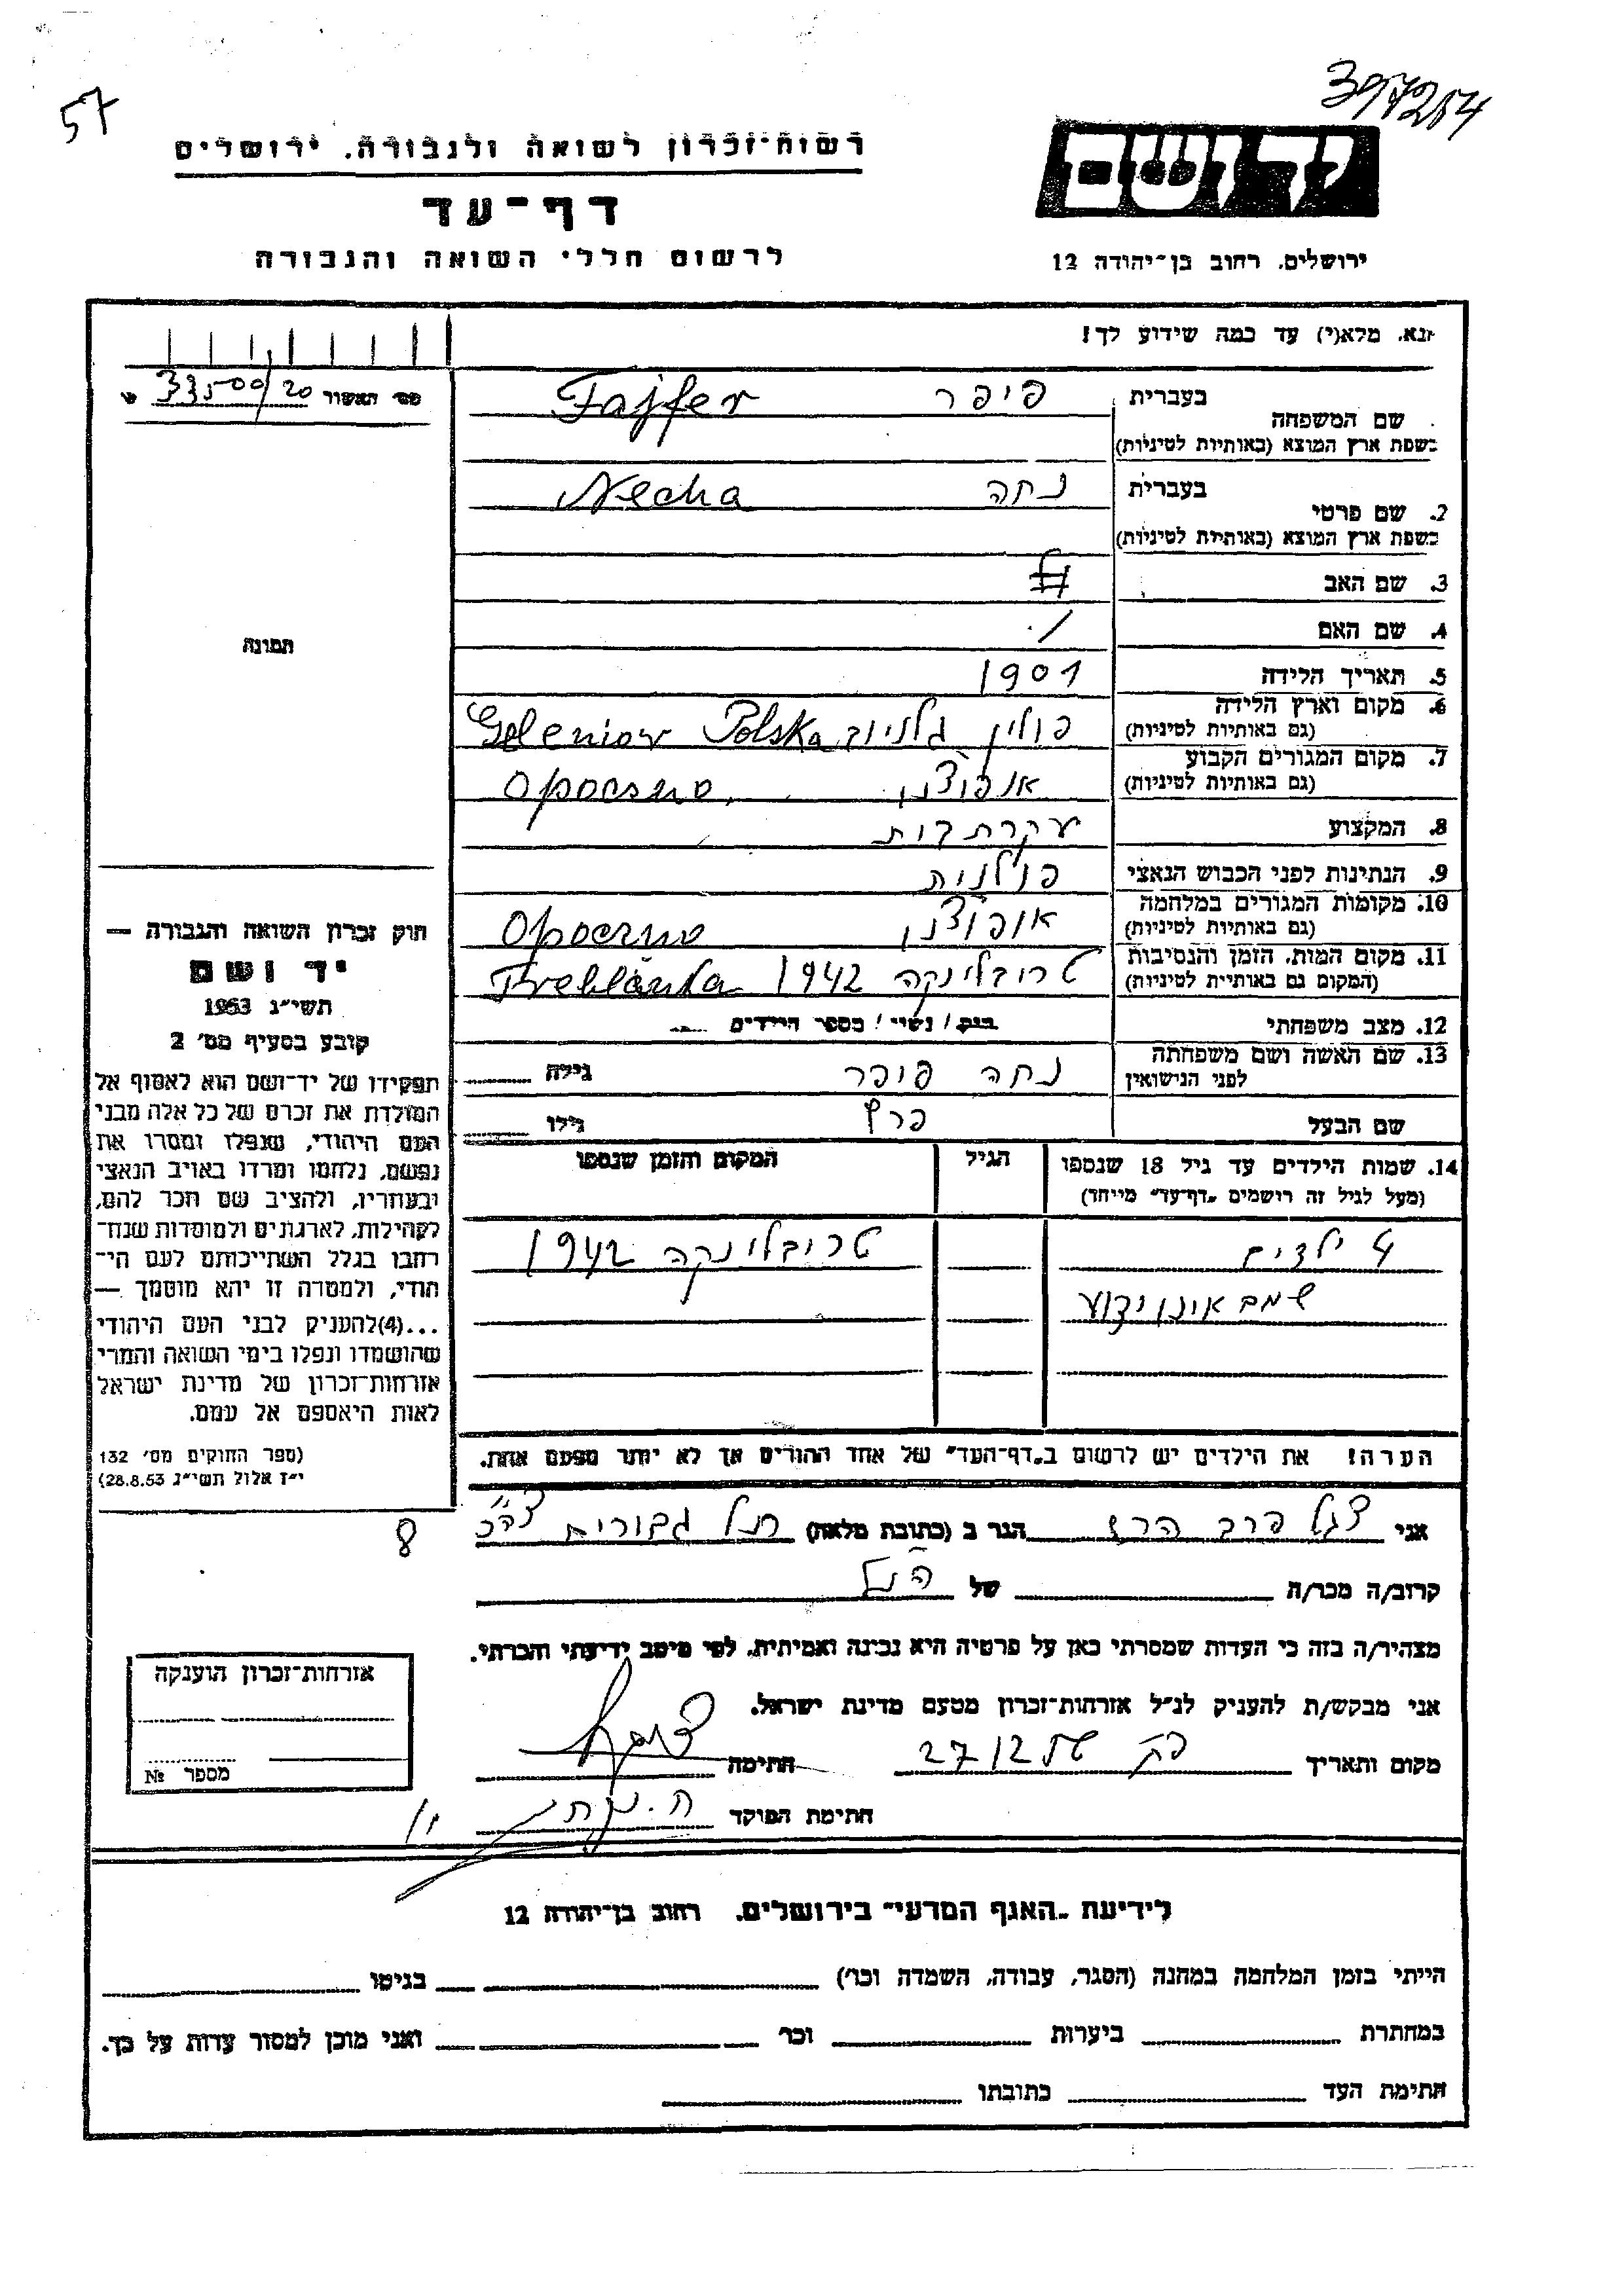 397204
57
רשות-זכרון לשואה ולגבורה. ירושלים
דף-עד
לרשום חללי השואה והגבורה
יד ושם
ירושלים. רחוב בן-יהודה 12
נא. מלא(י) עד כמה שידוע לך!
מס' האשור 33500/20
בעברית פיפר Fajfer
שם המשפחה
בשפת ארץ המוצא (באותיות לטיניות)
בעברית נחה Necha
2. שם פרטי
בשפת ארץ המוצא (באותיות לטיניות)
3. שם האב
4. שם האם
5. תאריך הלידה 1901
6. מקום וארץ הלידה פולין גלניוב Polska Geleniow
(גם באותיות לטיניות)
7. מקום המגורים הקבוע אופוצנו Opoczno
(גם באותיות לטיניות)
8. המקצוע עקרת בית
9. הנתינות לפני הכבוש הנאצי פולנית
10. מקומות המגורים במלחמה אופוצנו Opoczno
(גם באותיות לטיניות)
11. מקום המות. הזמן והנסיבות טריבלינקה 1942 Treblinka
(המקום גם באותיית לטיניות)
12. מצב משפחתי רווק/ נשוי/ מספר הילדים
13. שם האשה ושם משפחתה נחה פיפר גילה
לפני הנישואין
שם הבעל פרץ גילו
14. שמות הילדים עד גיל 18 שנספו הגיל המקום והזמן שנספו
(מעל לגיל זה רושמים "דף-עד" מיוחד)
4 ילדים טריבלינקה 1942
שמם אינו ידוע
הערה! את הילדים יש לרשום ב"דף-העד" של אחד ההורים אך לא יותר מפעם אחת.
תמונה
חוק זכרון השואה והגבורה —
יד ושם
תשי"ג 1953
קובע בסעיף מס' 2
תפקידו של יד-ושם הוא לאסוף אל
המולדת את זכרם של כל אלה מבני
העם היהודי, שנפלו ומסרו את
נפשם, נלחמו ומרדו באויב הנאצי
ובעוזריו, ולהציב שם וזכר להם,
לקהילות, לארגונים ולמוסדות שנח-
רבו בגלל השתייכותם לעם הי-
הודי, ולמטרה זו יהא מוסמך —
...(4) להעניק לבני העם היהודי
שהושמדו ונפלו בימי השואה והמרי
אזרחות-זכרון של מדינת ישראל
לאות היאספם אל עמם.
(ספר החוקים מס' 132
י"ז אלול תשי"ג 28.8.53)
8
אני הגר ב (כתובת מלאה) תל גבורים
קרוב/ה מכר/ה של הנ"ל
מצהיר/ה בזה כי העדות שמסרתי כאן על פרטיה היא נכונה ואמיתית, לפי מיטב ידיעתי והכרתי.
אני מבקש/ת להעניק לנ"ל אזרחות-זכרון מטעם מדינת ישראל.
מקום ותאריך 27 חתימה
חתימת הפוקד
אזרחות-זכרון הוענקה
מספר №
לידיעת "האגף המדעי" בירושלים. רחוב בן-יהודה 12
הייתי בזמן המלחמה במחנה (הסגר, עבודה, השמדה וכו') בגיטו
במחתרת ביערות וכו' ואני מוכן למסור עדות על כך.
חתימת העד כתובתו